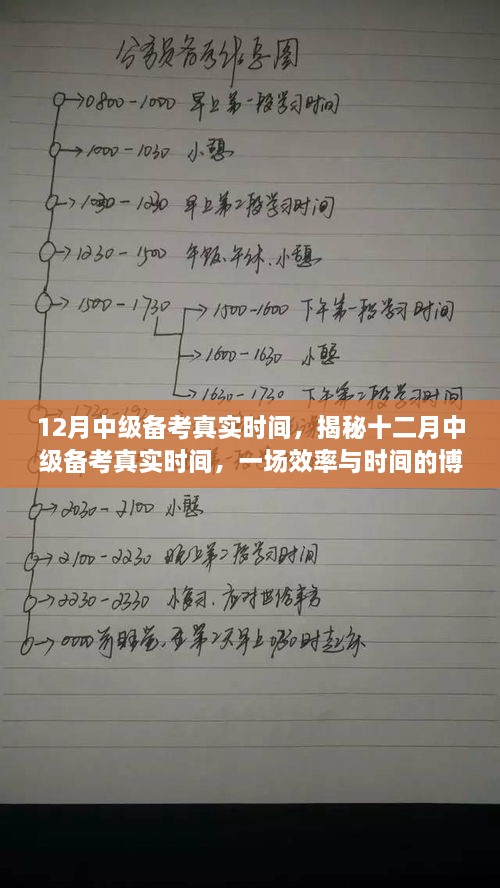 公务员备考作息图
0800-1000 早上第一段学习时间
1000-1030 小憩
1030-1230 早上第二段学习时间
1230-1500 午饭、午休、小憩
1500-1730
1500-1600 下午第一段学习时间
1600-1630 小憩
1630-1730 下午第二段学习时间
12月中级备考真实时间，揭秘十二月中
级备考真实时间，一场效率与时间的博
2030-2100 小憩
2100-2230 晚上第二段学习时间
2230-2330 小复习、应对
0000前睡觉，至第二天早上0730时起床